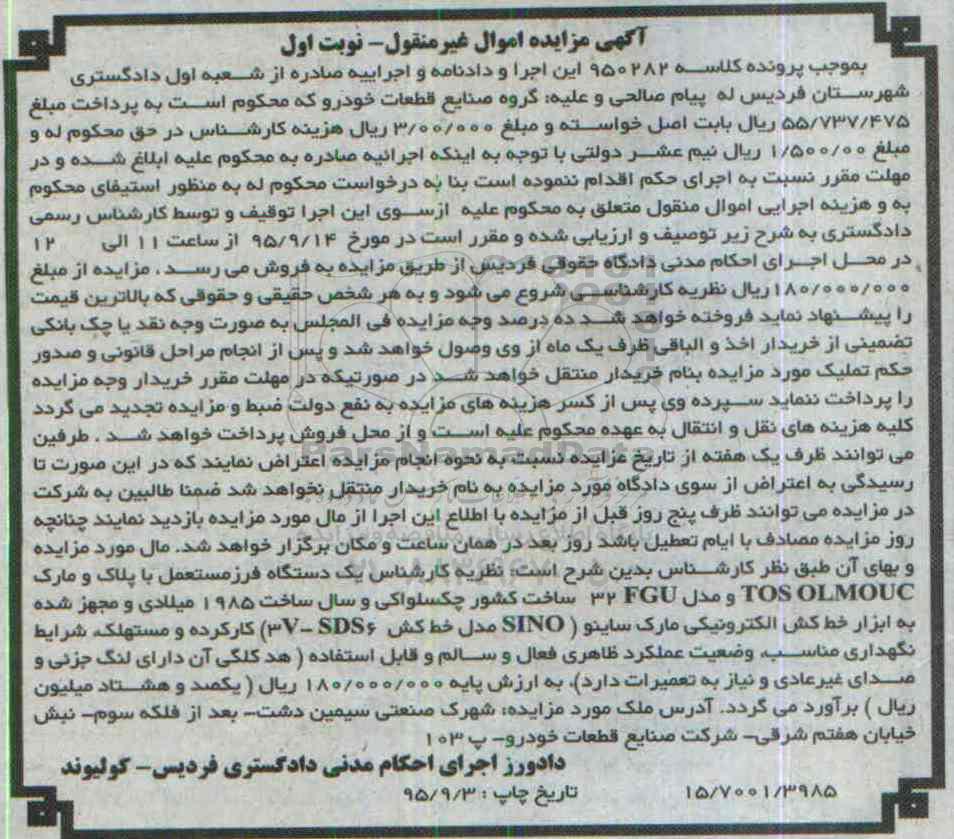 آگهی مزایده اموال غیرمنقول- نوبت اول
بموجب پرونده کلاسه ۹۵۰۲۸۲ این اجرا و دادنامه و اجراییه صادره از شعبه اول دادگستری
شهرستان فردیس له پیام صالحی و علیه: گروه صنایع قطعات خودرو که محکوم است به پرداخت مبلغ
۵۵/۷۳۷/۴۷۵ ریال بابت اصل خواسته و مبلغ ۳/۰۰/۰۰۰ ریال هزینه کارشناس در حق محکوم له و
مبلغ ۱/۵۰۰/۰۰ ریال نیم عشر دولتی با توجه به اینکه اجرائیه صادره به محکوم علیه ابلاغ شده و در
مهلت مقرر نسبت به اجرای حکم اقدام ننموده است بنا به درخواست محکوم له به منظور استیفای محکوم
به و هزینه اجرایی اموال منقول متعلق به محکوم علیه ازسوی این اجرا توقیف و توسط کارشناس رسمی
دادگستری به شرح زیر توصیف و ارزیابی شده و مقرر است در مورخ ۹۵/۹/۱۴ از ساعت ۱۱ الی ۱۲
در محل اجرای احکام مدنی دادگاه حقوقی فردیس از طریق مزایده به فروش می رسد ، مزایده از مبلغ
۱۸۰/۰۰۰/۰۰۰ ریال نظریه کارشناسی شروع می شود و به هر شخص حقیقی و حقوقی که بالاترین قیمت
را پیشنهاد نماید فروخته خواهد شد ده درصد وجه مزایده فی المجلس به صورت وجه نقد یا چک بانکی
تضمینی از خریدار اخذ و الباقی ظرف یک ماه از وی وصول خواهد شد و پس از انجام مراحل قانونی و صدور
حکم تملیک مورد مزایده بنام خریدار منتقل خواهد شد در صورتیکه در مهلت مقرر خریدار وجه مزایده
را پرداخت ننماید سپرده وی پس از کسر هزینه های مزایده به نفع دولت ضبط و مزایده تجدید می گردد
کلیه هزینه های نقل و انتقال به عهده محکوم علیه است و از محل فروش پرداخت خواهد شد . طرفین
می توانند ظرف یک هفته از تاریخ مزایده نسبت به نحوه انجام مزایده اعتراض نمایند که در این صورت تا
رسیدگی به اعتراض از سوی دادگاه مورد مزایده به نام خریدار منتقل نخواهد شد ضمنا طالبین به شرکت
در مزایده می توانند ظرف پنج روز قبل از مزایده با اطلاع این اجرا از مال مورد مزایده بازدید نمایند چنانچه
روز مزایده مصادف با ایام تعطیل باشد روز بعد در همان ساعت و مکان برگزار خواهد شد. مال مورد مزایده
و بهای آن طبق نظر کارشناس بدین شرح است: نظریه کارشناس یک دستگاه فرزمستعمل با پلاک و مارک
TOS OLMOUC و مدل FGU ۳۲ ساخت کشور چکسلواکی و سال ساخت ۱۹۸۵ میلادی و مجهز شده
به ابزار خط کش الکترونیکی مارک ساینو ( SINO مدل خط کش ۳V- SDS۶) کارکرده و مستهلک، شرایط
نگهداری مناسب، وضعیت عملکرد ظاهری فعال و سالم و قابل استفاده ( هد کلگی آن دارای لنگ جزئی و
صدای غیرعادی و نیاز به تعمیرات دارد)، به ارزش پایه ۱۸۰/۰۰۰/۰۰۰ ریال ( یکصد و هشتاد میلیون
ریال ) برآورد می گردد. آدرس ملک مورد مزایده: شهرک صنعتی سیمین دشت- بعد از فلکه سوم- نبش
خیابان هفتم شرقی- شرکت صنایع قطعات خودرو- پ ۱۰۳
دادورز اجرای احکام مدنی دادگستری فردیس- کولیوند
۱۵/۷۰۰۱/۳۹۸۵ تاریخ چاپ : ۹۵/۹/۳